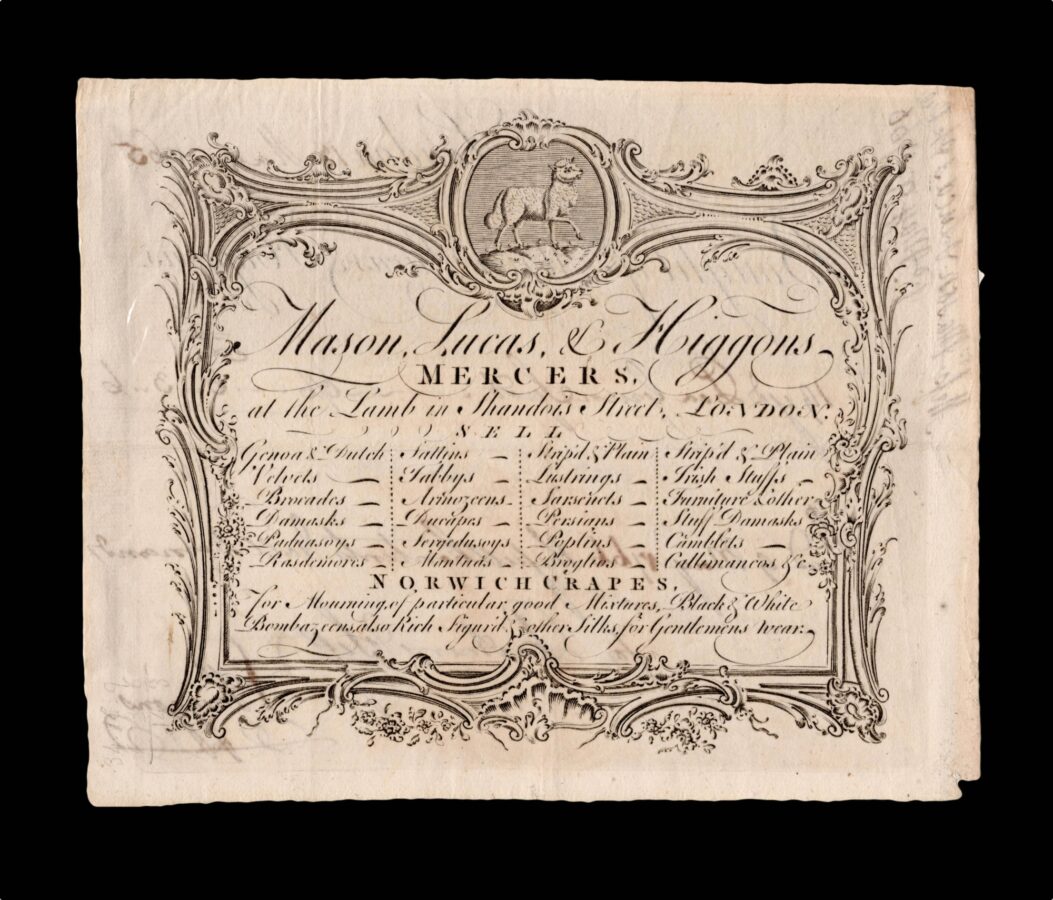 Mason, Lucas, & Higgons
MERCERS,
at the Lamb in Shandois Street, LONDON.
SELL
Genoa & Dutch
Velvets
Brocades
Damasks
Paduasoys
Rasdemores
Sattins
Tabbys
Armozeens
Ducapes
Sergedusoys
Mantuas
Strip'd & Plain
Lustrings
Sarsenets
Persians
Poplins
Broglios
Strip'd & Plain
Irish Stuffs
Furniture & other
Stuff Damasks
Camblets
Callimancos &c.
NORWICH CRAPES,
for Mourning, of particular good Mixtures, Black & White
Bombazeens, also Rich Figur'd & other Silks, for Gentlemens wear.